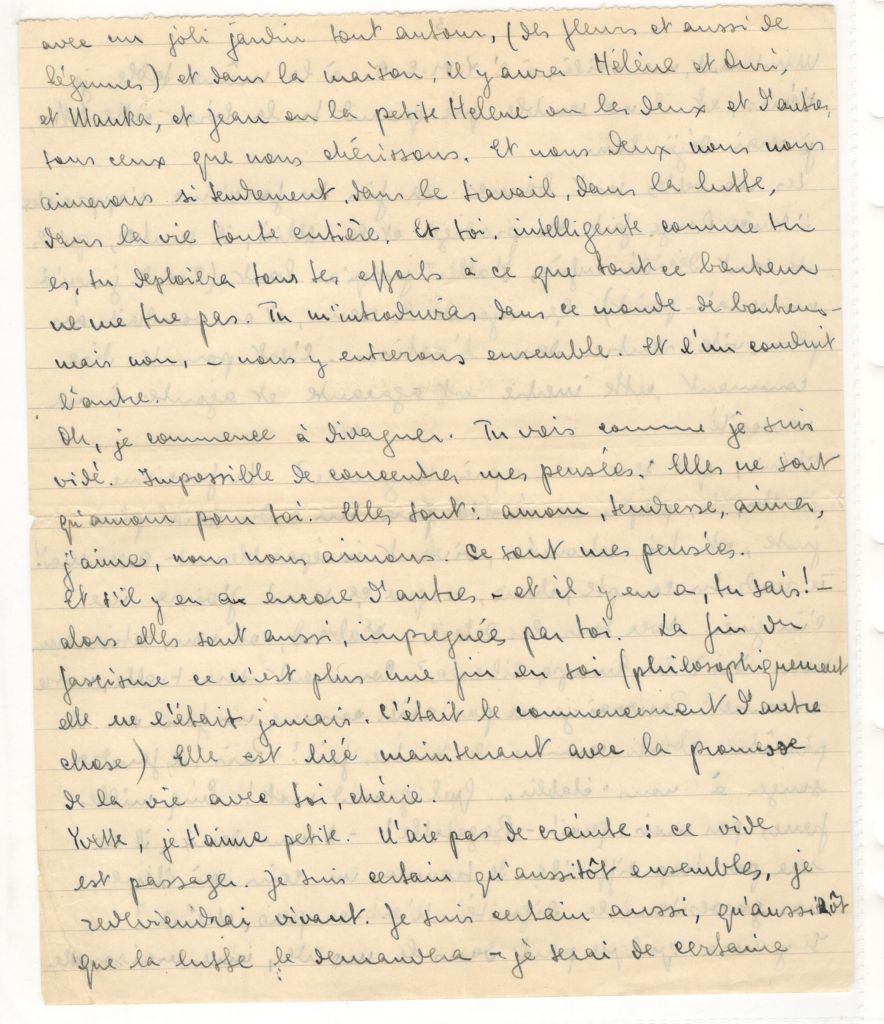 avec un joli jardin tout autour, (des fleurs et aussi de
légumes) et dans la maison, il y aura Hélène et Duri,
et Mauka, et Jean ou la petite Helene ou les deux et d'autres,
tous ceux que nous chérissons. Et nous deux nous nous
aimerons si tendrement, dans le travail, dans la lutte,
dans la vie toute entière. Et toi, intelligente comme tu
es, tu deploiera tous tes efforts à ce que tout ce bonheur
ne me tue pas. Tu m'introduiras dans ce monde de bonheur -
mais non, - nous y entrerons ensemble. Et l'un conduit
l'autre.
Oh, je commence à divaguer. Tu vois comme je suis
vidé. Impossible de concentrer mes pensées. Elles ne sont
qu'amour pour toi. Elles sont: amour, tendresse, aimer,
j'aime, nous nous aimons. Ce sont mes pensées.
Et s'il y en a encore d'autres - et il y en a, tu sais! -
alors elles sont aussi, impregnées par toi. La fin du
fascisme ce n'est plus une fin en soi (philosophiquement
elle ne l'était jamais. C'était le commencement d'autre
chose) Elle est liée maintenant avec la promesse
de la vie avec toi, chérie.
Yvette, je t'aime petite. N'aie pas de crainte: ce vide
est passager. Je suis certain qu'aussitôt ensembles, je
redeviendrai vivant. Je suis certain aussi, qu'aussitôt
que la lutte le demandera - je serai de certaine